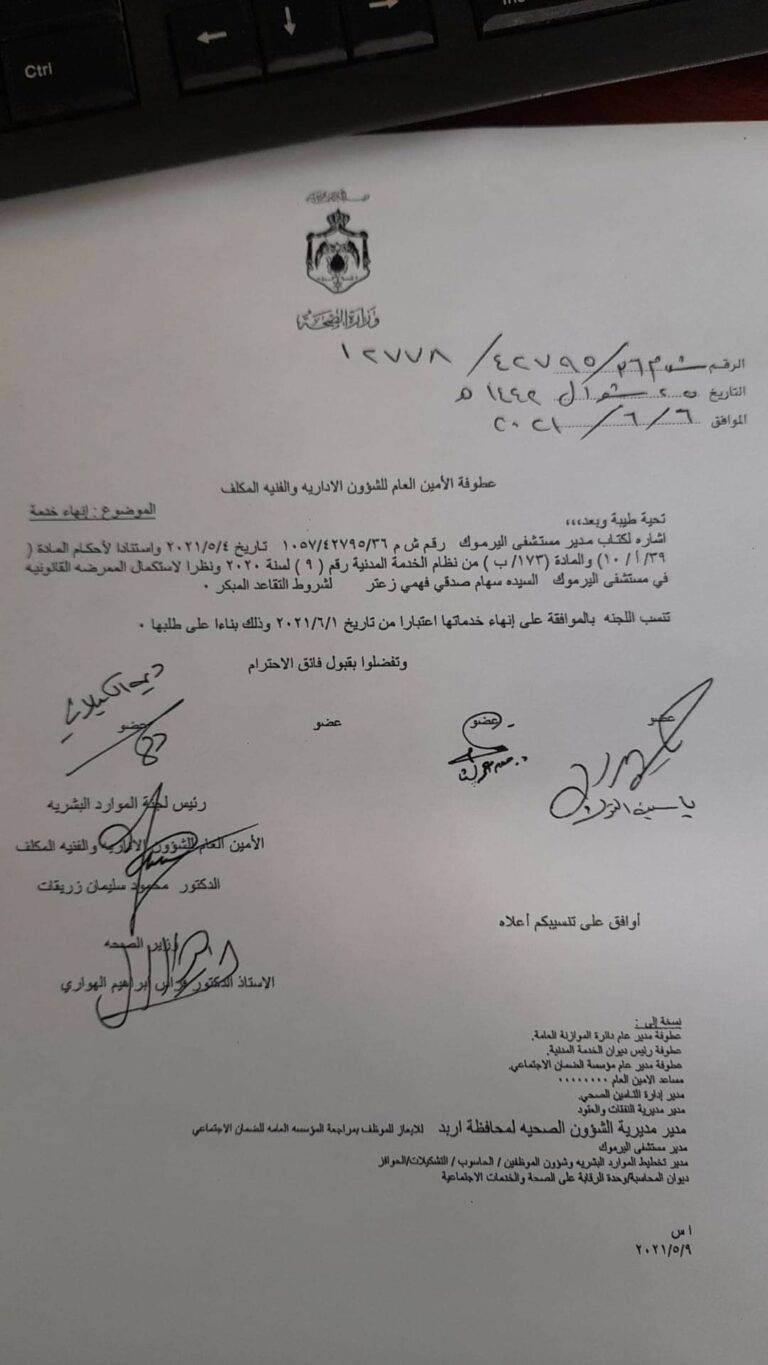 Ctrl
← ↓ →
وزارة الصحة
الرقم ش م ٣٦/٤٢٧٩٥/١٢٧٧٨
التاريخ ٢٥ شوال ١٤٤٢ هـ
الموافق ٢٠٢١/٦/٦
عطوفة الأمين العام للشؤون الاداريه والفنيه المكلف
الموضوع : إنهاء خدمة
تحية طيبة وبعد،،،
اشاره لكتاب مدير مستشفى اليرموك رقم ش م ١٠٥٧/٤٢٧٩٥/٣٦ تاريخ ٢٠٢١/٥/٤ واستنادا لأحكام المادة (
٣٩/ أ / ١٠) والمادة (١٧٣/ ب ) من نظام الخدمة المدنية رقم ( ٩ ) لسنة ٢٠٢٠ ونظرا لاستكمال الممرضه القانونيه
في مستشفى اليرموك السيده سهام صدقي فهمي زعتر لشروط التقاعد المبكر ٠
تنسب اللجنه بالموافقة على إنهاء خدماتها اعتبارا من تاريخ ٢٠٢١/٦/١ وذلك بناءا على طلبها ٠
وتفضلوا بقبول فائق الاحترام
عضو عضو عضو عضو
رئيس لجنة الموارد البشريه
الأمين العام للشؤون الاداريه والفنيه المكلف
الدكتور محمود سليمان زريقات
أوافق على تنسيبكم أعلاه
وزير الصحه
الاستاذ الدكتور فراس ابراهيم الهواري
نسخة إلى :
عطوفة مدير عام دائرة الموازنة العامة.
عطوفة رئيس ديوان الخدمة المدنية.
عطوفة مدير عام مؤسسة الضمان الاجتماعي.
مساعد الامين العام ٠٠٠٠٠٠٠٠
مدير إدارة التامين الصحي.
مدير مديرية النفقات والعقود
مدير مديرية الشؤون الصحيه لمحافظة اربد للايعاز للموظف بمراجعة المؤسسه العامه للضمان الاجتماعي
مدير مستشفى اليرموك
مدير تخطيط الموارد البشريه وشؤون الموظفين / الحاسوب / التشكيلات/الحوافز
ديوان المحاسبة/وحدة الرقابة على الصحة والخدمات الاجتماعية
ا س
٢٠٢١/٥/٩